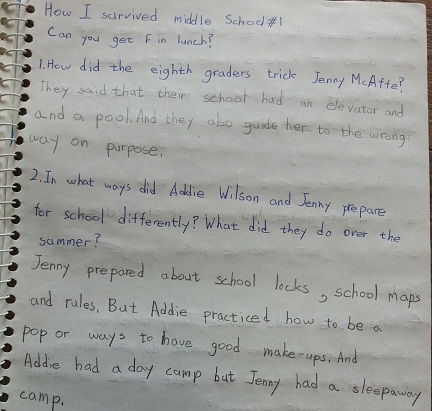 How I survived middle School #1
Can you get F in lunch?
1. How did the eighth graders trick Jenny McAffe?
They said that their school had an elevator and
and a pool. And they also guide her to the wrong
way on purpose.
2. In what ways did Addie Wilson and Jenny prepare
for school differently? What did they do over the
summer?
Jenny prepared about school locks, school maps
and rules. But Addie practiced how to be a
pop or ways to have good make-ups. And
Addie had a day camp but Jenny had a sleepaway
camp.